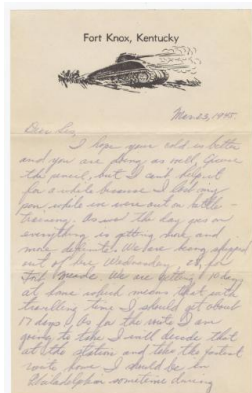 Fort Knox, Kentucky
Mar 23, 1945
Dear
I hope your cold is better
and you are doing as well. Excuse
the pencil, but I can't help it
for a while because I lost my
pen while we were out on battle
training. As the day goes on
everything is getting more and
more definite. We are being shipped
out of here Wednesday, 28, for
Fort Meade. We are getting a 10 day
at home which means that with
travelling time I should get about
17 days. As for the route I am
going to take I will decide that
at the station and take the fastest
route home. I should be in
Philadelphia sometime during